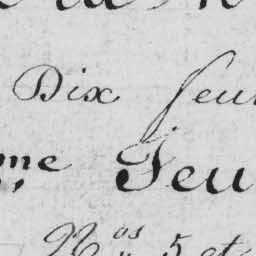 Dix feui
me Feu
Nos 5 et